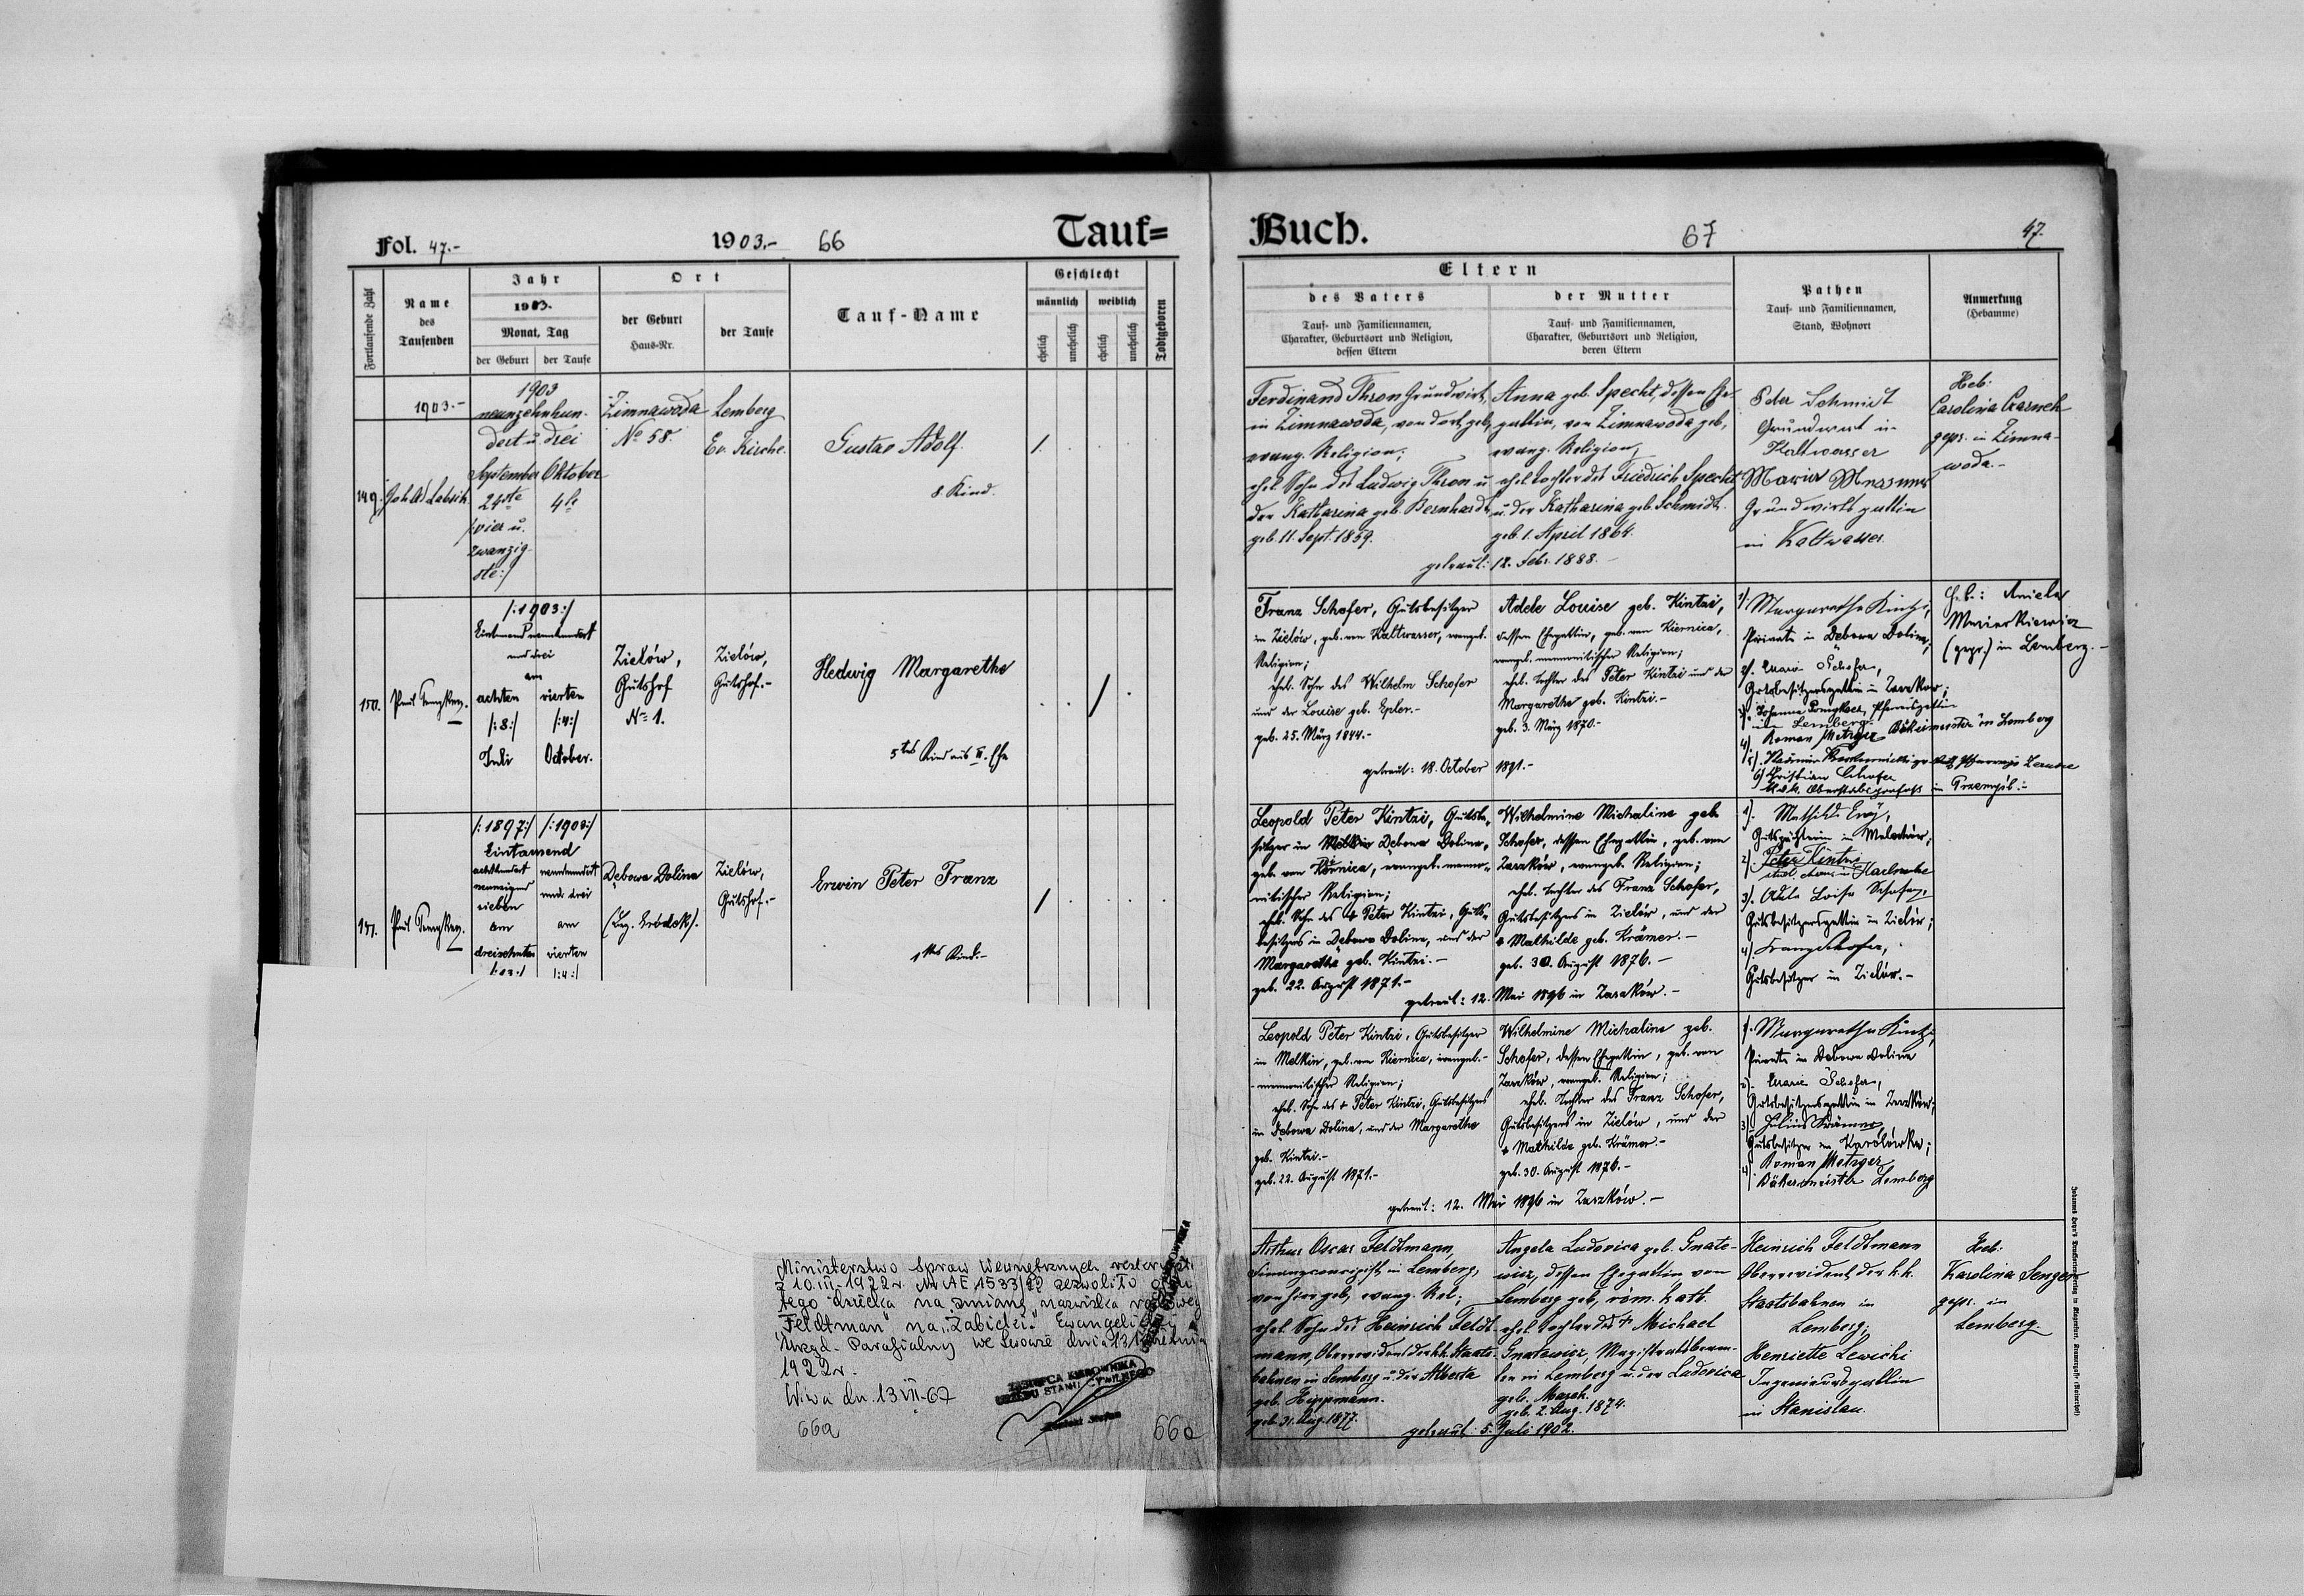 Fol. 47.-
1903.- 66
Tauf=
Fortlaufende Zahl
Name
des
Taufenden
Jahr
1903.
Monat, Tag
der Geburt
der Taufe
Ort
der Geburt
Haus-Nr.
der Taufe
Tauf-Name
Geschlecht
männlich
weiblich
ehelich
unehelich
ehelich
unehelich
Todtgeboren
1903.-
149.
1903
neunzehnhun-
dert u. drei
September Oktober
24ste 4te
/:vier u.
zwanzig-
ste:/
Zimnawoda
No 58.
Lemberg
Ev. Kirche.
Gustav Adolf.
8 Kind.
150.
/:1903:/
und drei
am
achten vierten
/:8:/ /:4:/
Juli October.
Zielów,
Gutshof
No 1.
Zielów,
Gutshof.-
Hedwig Margarethe
5tes Kind aus II. Ehe
151.
/:1897:/ /:1903:/
Eintausend
achthundert neunhundert
neunzig und und drei
sieben
am am
dreizehnten vierten
/:13:/ /:4:/
Dębowa Dolina
Zielów,
Gutshof.-
Erwin Peter Franz
1tes Kind.-
Ministerstwo Spraw Wewnętrznych
z 10.III.1922r. zezwoliło
tego dziecka na zmianę nazwiska
"Feldtman" na "Zabicki".
Urząd Parafialny we Lwowie dnia 13
1922r.
W-wa dn. 13 VII-67
ZASTĘPCA KIEROWNIKA
URZĘDU STANU CYWILNEGO
66a
66a
Buch.
67
47.
Eltern
des Vaters
Tauf- und Familiennamen,
Charakter, Geburtsort und Religion,
dessen Eltern
der Mutter
Tauf- und Familiennamen,
Charakter, Geburtsort und Religion,
deren Eltern
Pathen
Tauf- und Familiennamen,
Stand, Wohnort
Anmerkung
(Hebamme)
Ferdinand Thron Grundwirt,
in Zimnawoda, von dort geb,
evang. Religion;
ehel. Sohn des Ludwig Thron u.
der Katharina geb. Bernhardt
geb. 11. Sept. 1859.
Anna geb. Specht, dessen Ehe-
gattin, von Zimnawoda geb,
evang. Religion,
ehel. Tochter des Friedrich Specht
u. der Katharina geb. Schmidt.
geb. 1. April 1864.
getraut: 12. Feb. 1888.-
Peter Schmidt
Grundwirt in
Kaltwasser
Maria Messmer
Grundwirtsgattin
in Kaltwasser.
Heb:
Carolina
gepr. in Zimna-
woda.-
Franz Schofer, Gutsbesitzer
in Zielów, geb. von Kaltwasser, evangel.
Religion;
ehel. Sohn des Wilhelm Schofer
und der Louise geb. Epler.-
geb. 25. März 1844.-
Adele Louise geb. Kintzi,
dessen Ehegattin, geb. von Kiernica,
evangel. mennonitischer Religion;
ehel. Tochter des Peter Kintzi und der
Margarethe geb. Kintzi.-
geb. 3. März 1870.-
getraut: 18. October 1891.-
1) Margarethe Kintzi,
Private in Debowa Dolina,
2) Marie Schofer,
Gutsbesitzersgattin in Zaszków;
in Lemberg.
4) Roman Metzger Bäckermeister in Lemberg
6) Christian Schofer
in Przemyśl.-
Heb.: Aniela
(gepr.) in Lemberg.-
Leopold Peter Kintzi, Gutsbe-
sitzer in Debowa Dolina,
geb. von Kiernica, evangel. menno-
nitischer Religion;
ehel. Sohn des + Peter Kintzi, Guts-
besitzers in Dębowa Dolina, und der
Margaretha geb. Kintzi.-
geb. 22. August 1871.-
Wilhelmine Michaline geb.
Schofer, dessen Ehegattin, geb. von
Zaszków, evangel. Religion;
ehel. Tochter des Franz Schofer,
Gutsbesitzers in Zielów, und der
+ Mathilde geb. Krämer.-
geb. 30. August 1876.-
getraut: 12. Mai 1896 in Zaszków.-
2) Peter Kintzi
in Karlsruhe
3) Adele Luise Schofer,
Gutsbesitzersgattin in Zielów;
4) Franz Schofer,
Gutsbesitzer in Zielów.-
Leopold Peter Kintzi, Gutsbesitzer
in Melkin, geb. von Kiernica, evangel.-
-mennonitischer Religion;
ehel. Sohn des + Peter Kintzi, Gutsbesitzers
in Dębowa Dolina, und der Margarethe
geb. Kintzi.-
geb. 22. August 1871.-
Wilhelmine Michaline geb.
Schofer, dessen Ehegattin, geb. von
Zaszków, evangel. Religion;
ehel. Tochter des Franz Schofer,
Gutsbesitzers in Zielów, und der
+ Mathilde geb. Krämer.-
geb. 30. August 1876.-
getraut: 12. Mai 1896 in Zaszków.-
1. Margarethe Kintzi,
Private in Debowa Dolina
2) Marie Schofer,
Gutsbesitzersgattin in Zaszków;
3) Julius Krämer,
Gutsbesitzer in Karolówka;
4) Roman Metzger
Bäckermeister Lemberg
Arthur Oscar Feldtmann,
Finanzconcipist in Lemberg,
von hier geb, evang. Rel;
ehel. Sohn des Heinrich Feldt-
mann, Oberrevident der k.k. Staats-
bahnen in Lemberg u. der Alberta
geb. Hippmann.
geb. 31. Aug. 1877.
Angela Ludovica geb. Gnate-
wicz, dessen Ehegattin von
Lemberg geb, röm. kath.
ehel. Tochter des + Michael
Gnatewicz, Magistratsbeam-
ten in Lemberg u. der Ludovica
geb. Mazek.
geb. 2. Aug. 1874.
getraut: 5. Juli 1902.
Heinrich Feldtmann
Oberrevident der k.k.
Staatsbahnen in
Lemberg;
Henriette Lewicki
Ingenieursgattin
in Stanislau.
Heb:
Karolina Senger
gepr. in
Lemberg.